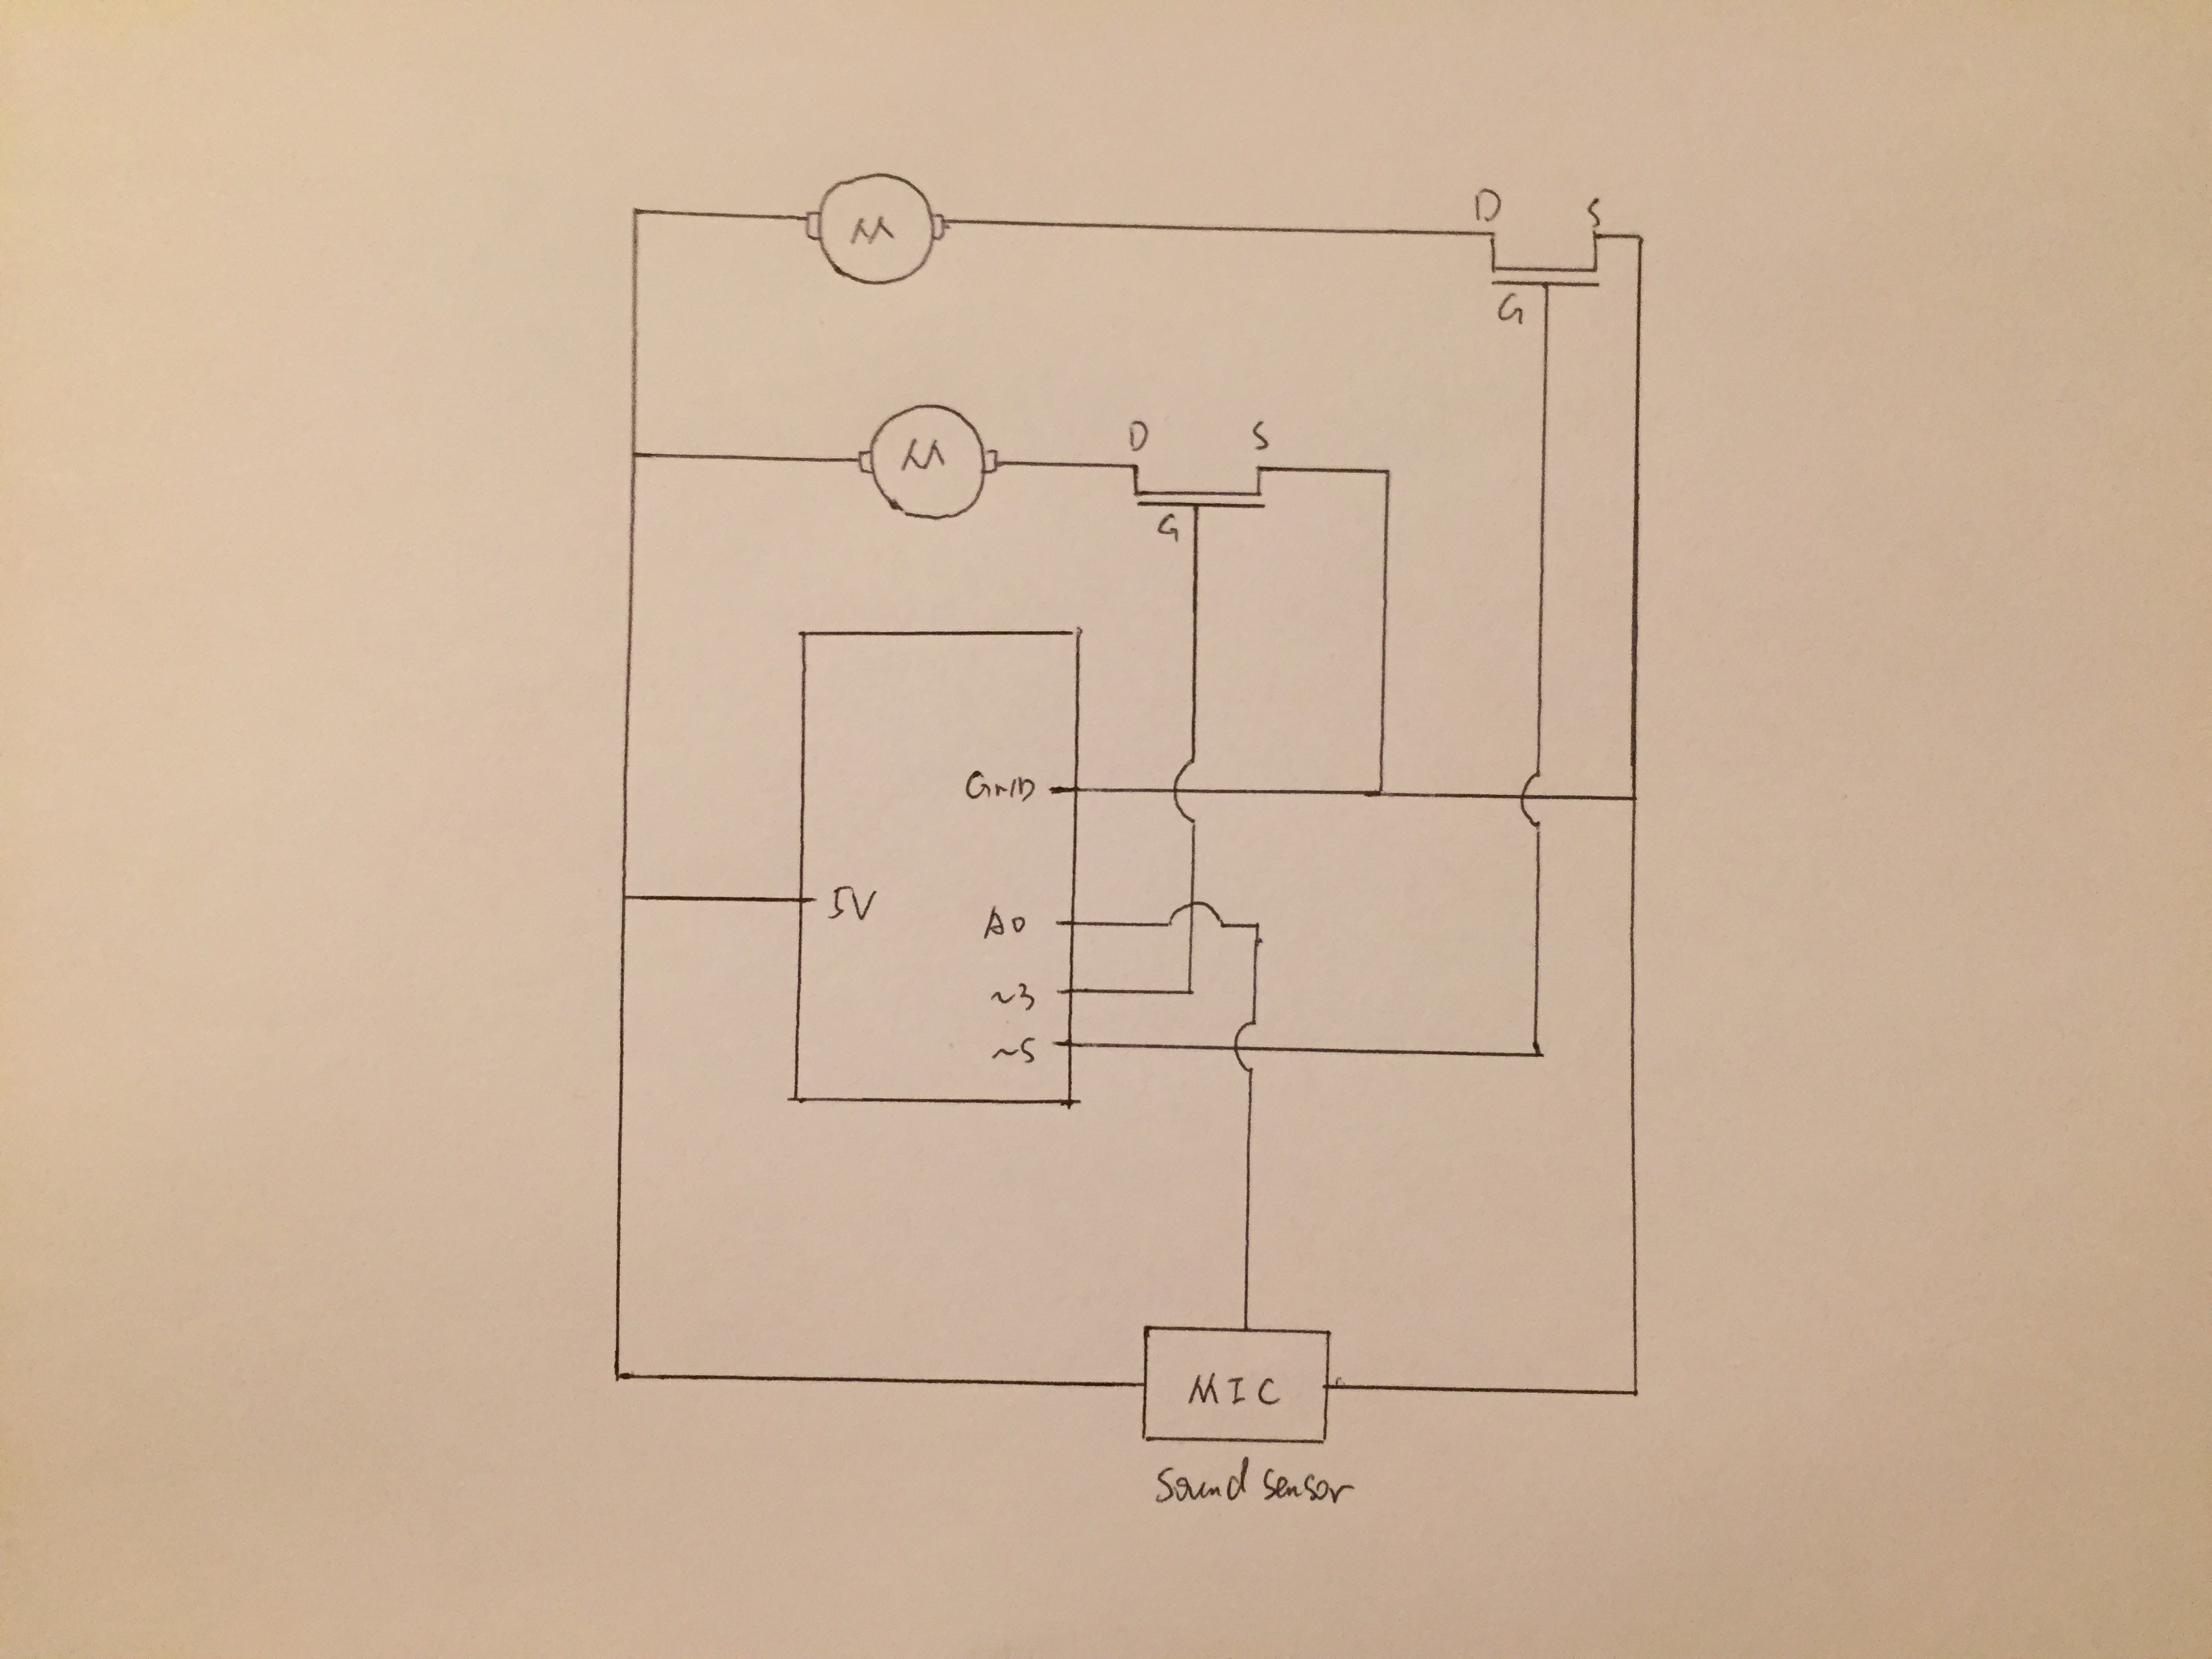 D S
M
G
D S
M
G
GND
5V
A0
~3
~5
MIC
Sound sensor